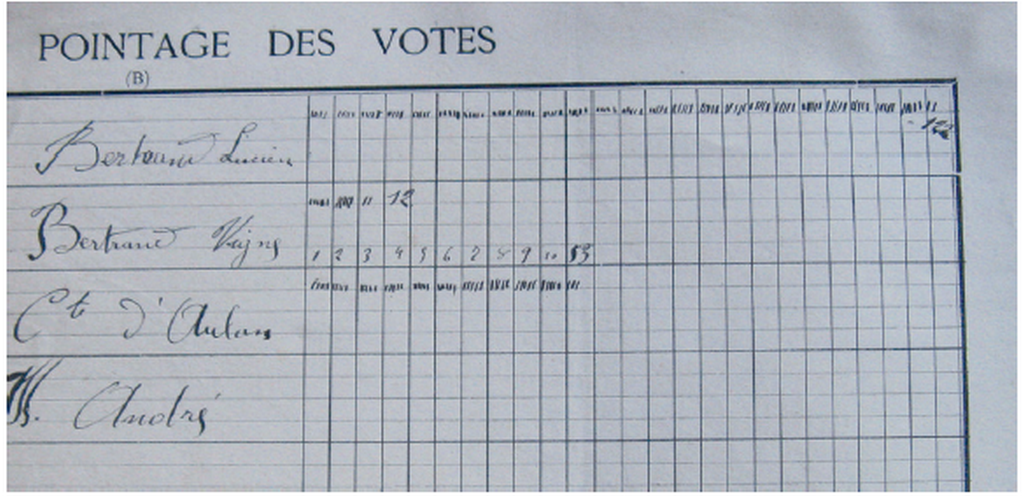 POINTAGE DES VOTES
(B)
Bertrand Lucien 122
Bertrand 12
1 2 3 4 5 6 7 8 9 10 53
Cte d'Aulan
André